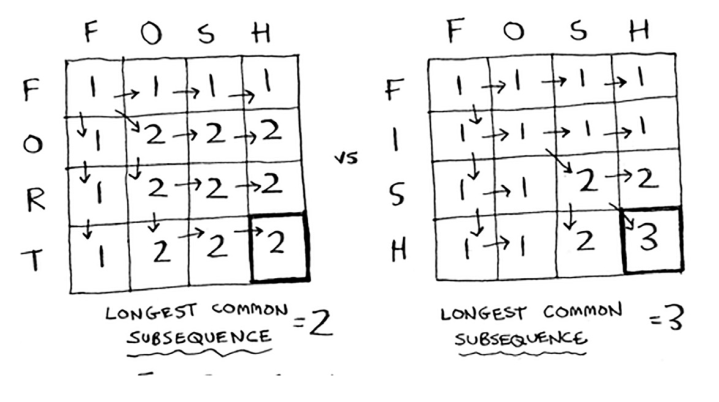 F O S H
F 1 → 1 → 1 → 1
O 1 2 → 2 → 2
R 1 2 → 2 → 2
T 1 2 → 2 → 2
LONGEST COMMON
SUBSEQUENCE = 2
vs
F O S H
F 1 → 1 → 1 → 1
I 1 → 1 → 1 → 1
S 1 → 1 2 → 2
H 1 → 1 2 3
LONGEST COMMON
SUBSEQUENCE = 3